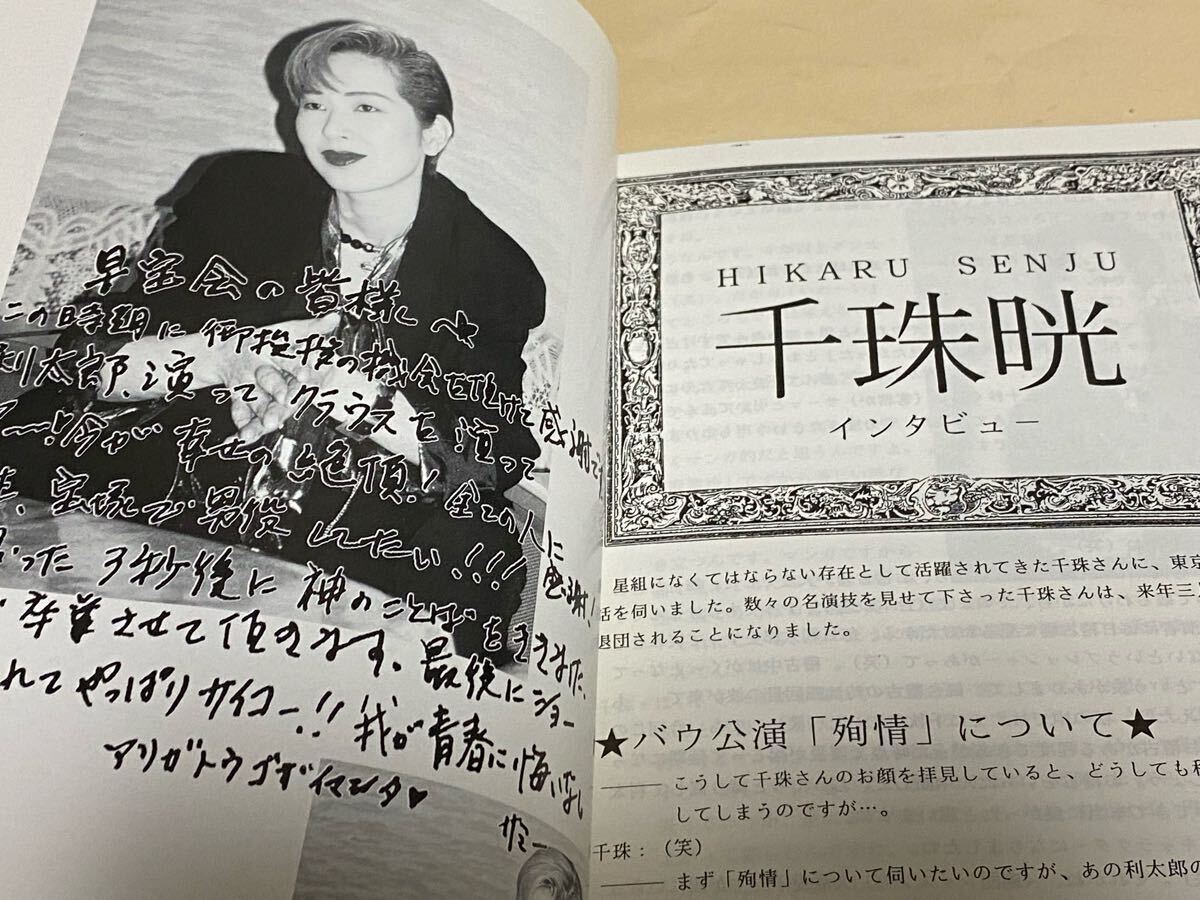 早宝会の皆様へ
この時期に御挨拶の機会を頂けて感謝で
利太郎、演って クラウスを演って
今が幸せの絶頂! 全ての人に感謝!
宝塚で男役したい!!!
った 3秒後に神のことばをききました。
卒業させて頂きます。最後にショー
れて やっぱりサイコー!! 我が青春に悔いなし
アリガトウゴザイマシタ♥
サミー
HIKARU SENJU
千珠晄
インタビュー
星組になくてはならない存在として活躍されてきた千珠さんに、東京
話を伺いました。数々の名演技を見せて下さった千珠さんは、来年三月
退団されることになりました。
★バウ公演「殉情」について★
―― こうして千珠さんのお顔を拝見していると、どうしても利
してしまうのですが…。
千珠：（笑）
―― まず「殉情」について伺いたいのですが、あの利太郎の